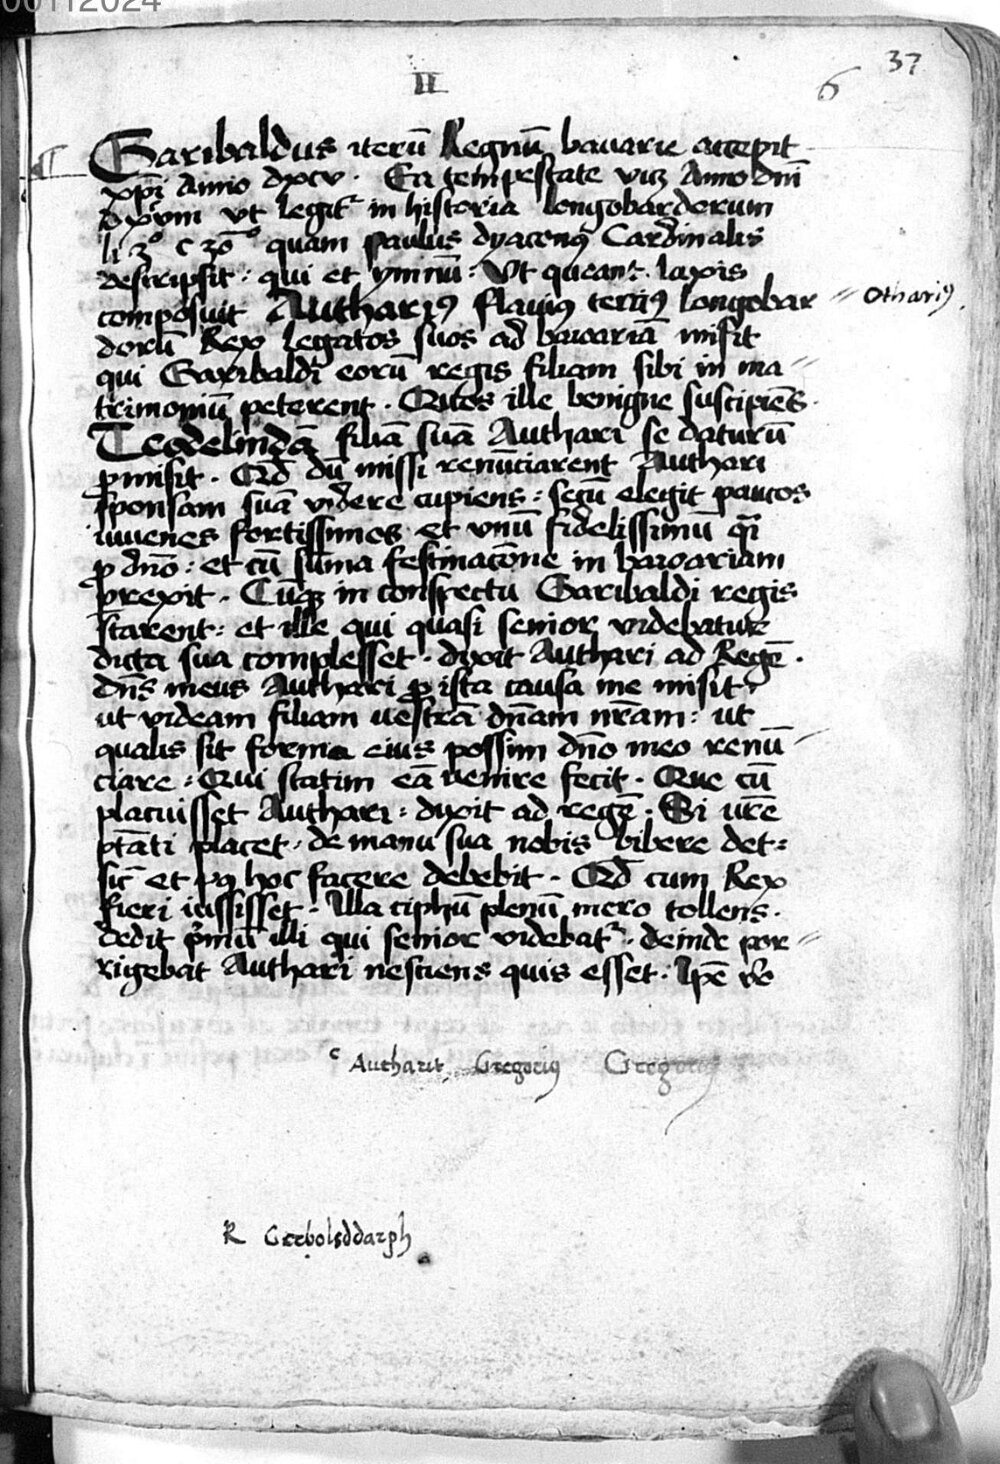 00112024
37
6
II
Garibaldus iterū Regnū bavarie accepit
xpi Anno dxcv. Ea tempestate viz Anno dni
ut legit in historia longobardorum
li 3° c 30° quam paulus dyaconꝯ Cardinalis
descripsit: qui et ymnū: Ut queant. laxis
composuit Autharꝯ flaviꝯ terciꝯ longobar
Othariꝯ
dorū Rex legatos suos ad bavariā misit
qui Garibaldi eorū regis filiam sibi in ma
trimoniū peterent. Quos ille benigne suscipiēs.
Teodelindā filiā suā Authari se daturū
ꝓmisit. Qd dū missi renūciarent Authari
sponsam suā videre cupiens: secū elegit paucos
iuvenes fortissimos et unū fidelissimū
ꝓ dno: et cū sūma festinacōne in bavariam
prexit. Cūqꝫ in conspectu Garibaldi regis
starent: et ille qui quasi senior videbatur
dicta sua complesset. dyxit Authari ad Regē.
dns meus Authari ꝓ ista causa me misit:
ut videam filiam vestrā dnam nrām: ut
qualis sit forma eius possim dno meo renū
ciare: Qui statim eā venire fecit. Que cū
placuisset Authari: dyxit ad regē. Si vrē
ptāti placet. de manu sua nobis bibere det:
sic et hoc facere debebit. Qd cum Rex
fieri iussisset. Illa ciphū plenū mero tollens.
dedit pmū illi qui senior videbat. deinde por
rigebat Authari nesciens quis esset. Ipē vo
c Autharit Gregoriꝯ Gregoriꝯ
R